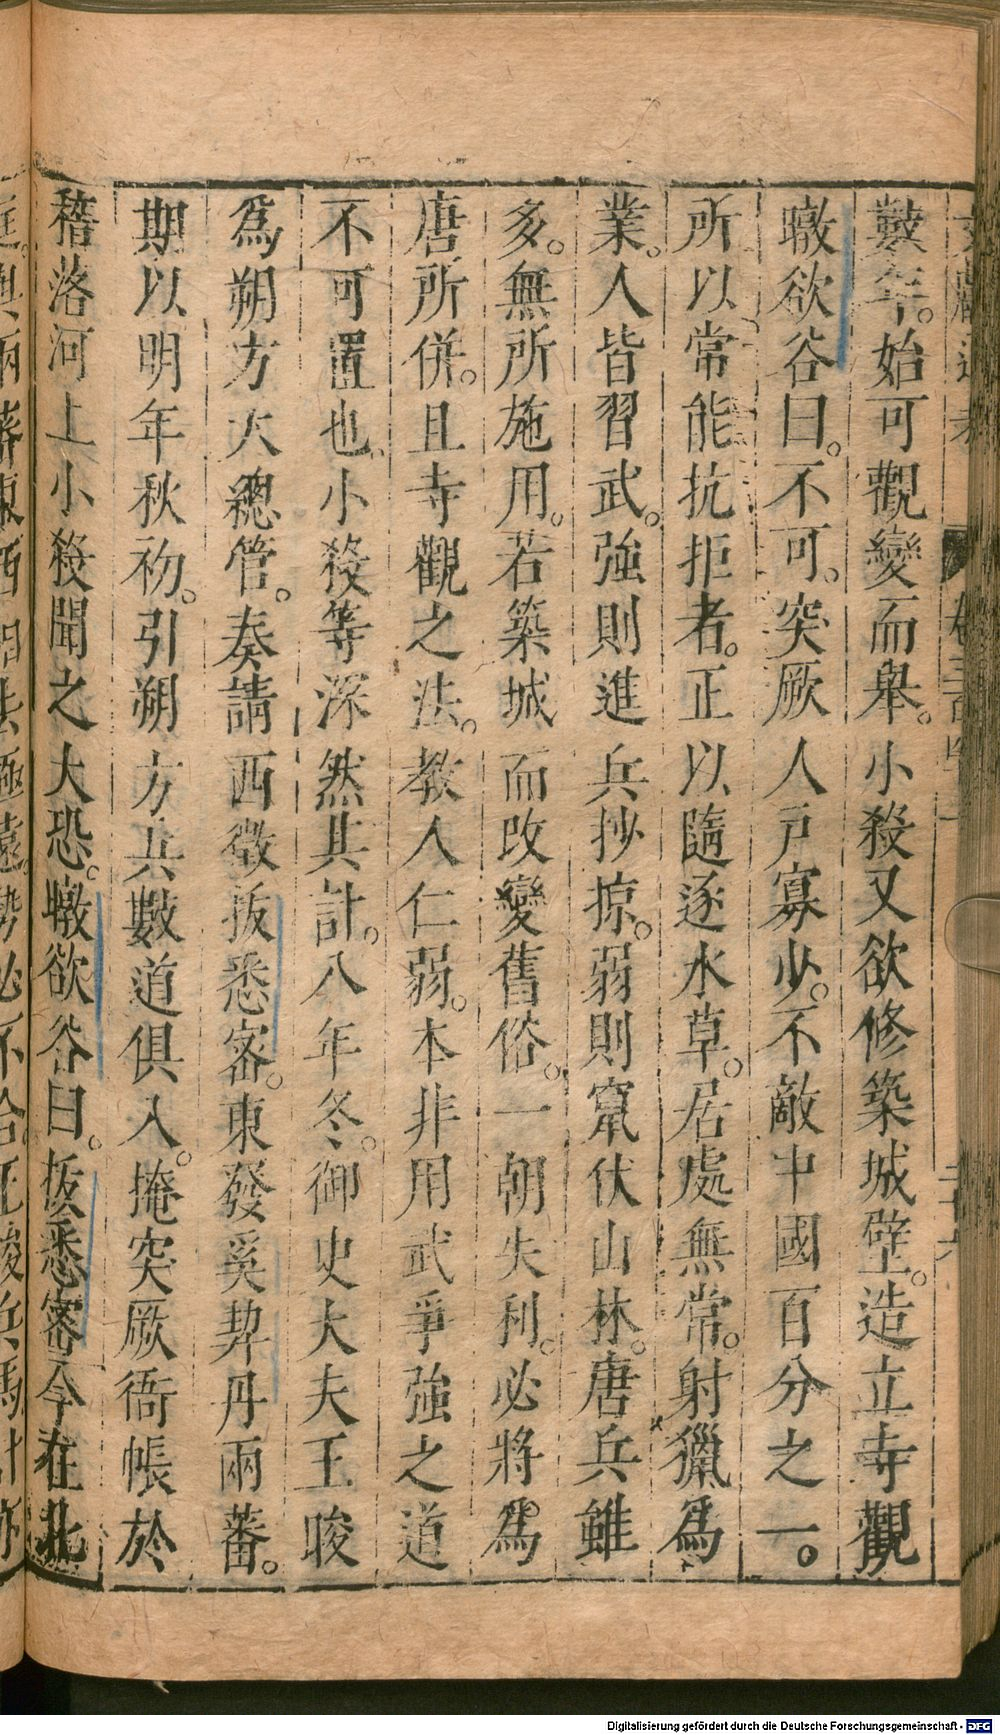 數年。始可觀變而舉。小殺又欲修築城壁。造立寺觀
暾欲谷曰。不可。突厥人戸寡少。不敵中國百分之一。
所以常能抗拒者。正以隨逐水草。居處無常。射獵爲
業。人皆習武。強則進兵抄掠。弱則竄伏山林。唐兵雖
多。無所施用。若築城而改變舊俗。一朝失利。必將爲
唐所併。且寺觀之法。教人仁弱。本非用武爭強之道
不可置也。小殺等深然其計。八年冬。御史大夫王晙
爲朔方大總管。奏請西徵拔悉密。東發奚契丹兩蕃。
期以明年秋初。引朔方兵數道俱入。掩突厥衙帳於
稽落河上小殺聞之大恐。暾欲谷曰。拔悉密今在北
Digitalisierung gefördert durch die Deutsche Forschungsgemeinschaft - DFG